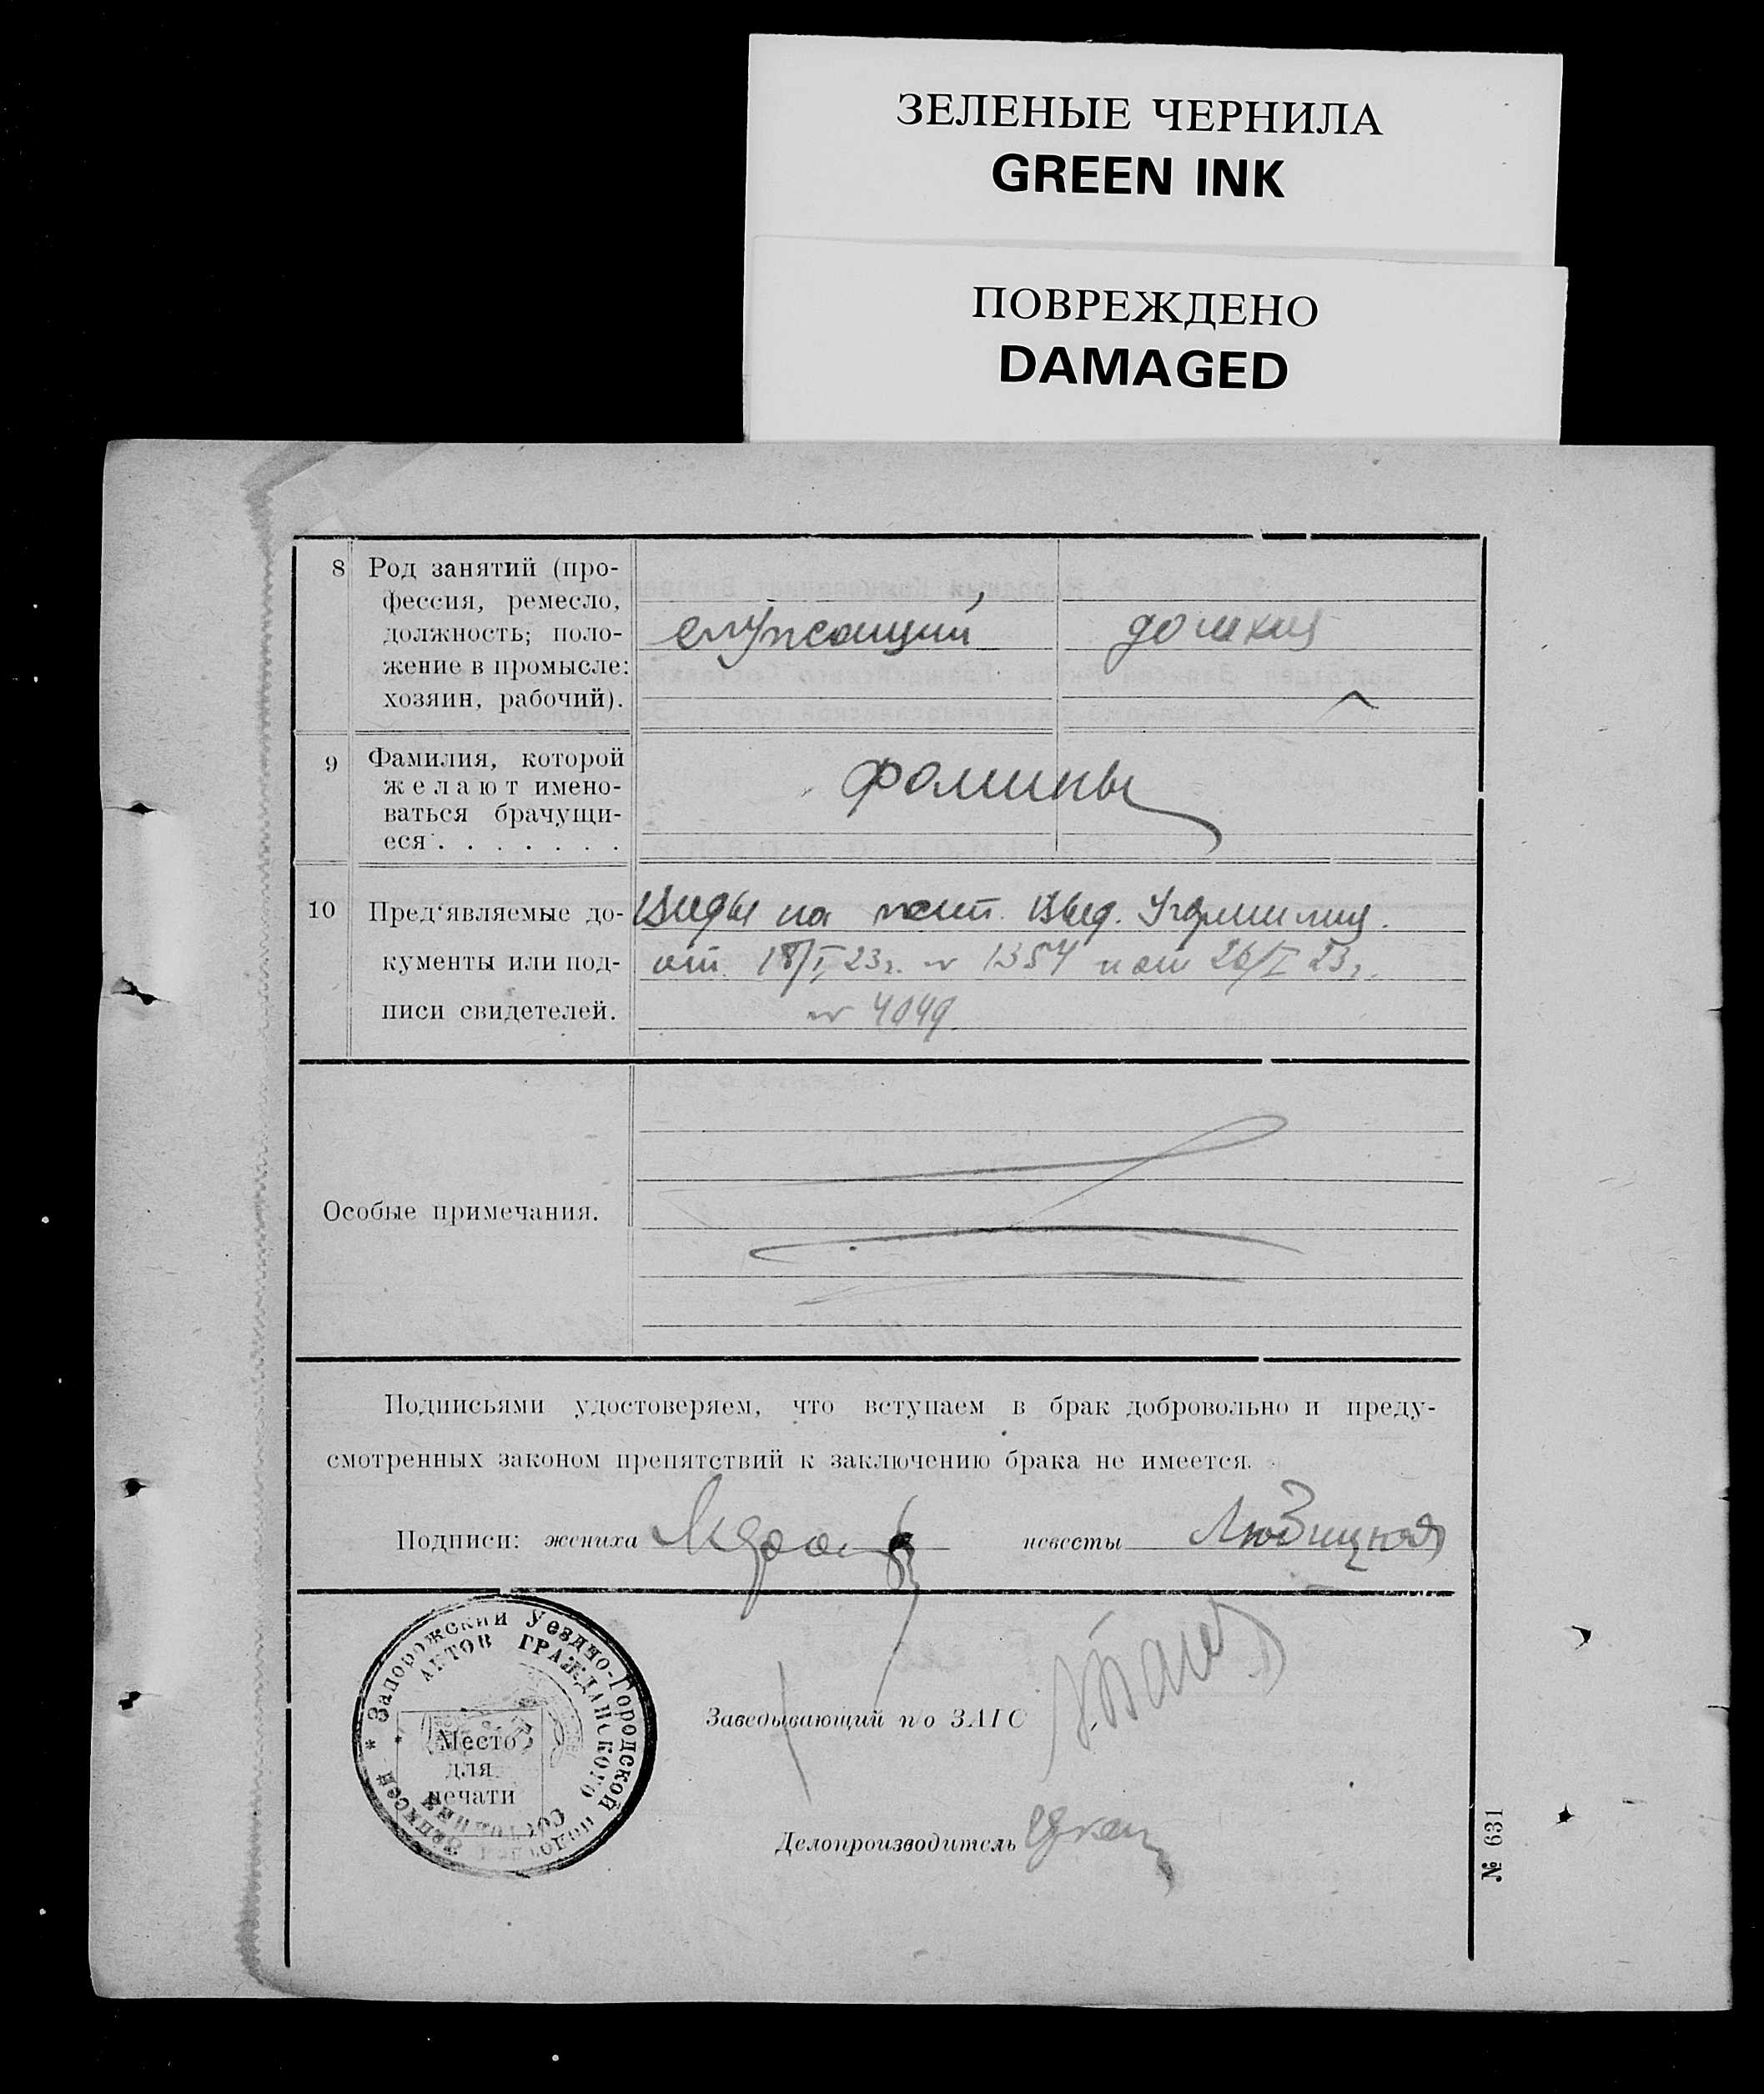 ЗЕЛЕНЫЕ ЧЕРНИЛА
GREEN INK
ПОВРЕЖДЕНО
DAMAGED
8 Род занятий (про-
фессия, ремесло,
должность; поло-
жение в промысле:
хозяин, рабочий).
служащий
9 Фамилия, которой
желают имено-
ваться брачущи-
еся . . . . . . .
Фомины
10 Пред'являемые до-
кументы или под-
писи свидетелей.
Виды на жит. Выд.
от 18/I 23г. № 1354 и от 26/I 23г.
№ 4049
Особые примечания.
Подписьями удостоверяем, что вступаем в брак добровольно и преду-
смотренных законом препятствий к заключению брака не имеется.
Подписи: жениха невесты
Запорожский Уездно-Городской подотдел Записей
Актов Гражданского Состояния
Место
для
печати
Заведывающий п/о ЗАГС
Делопроизводитель
№ 631